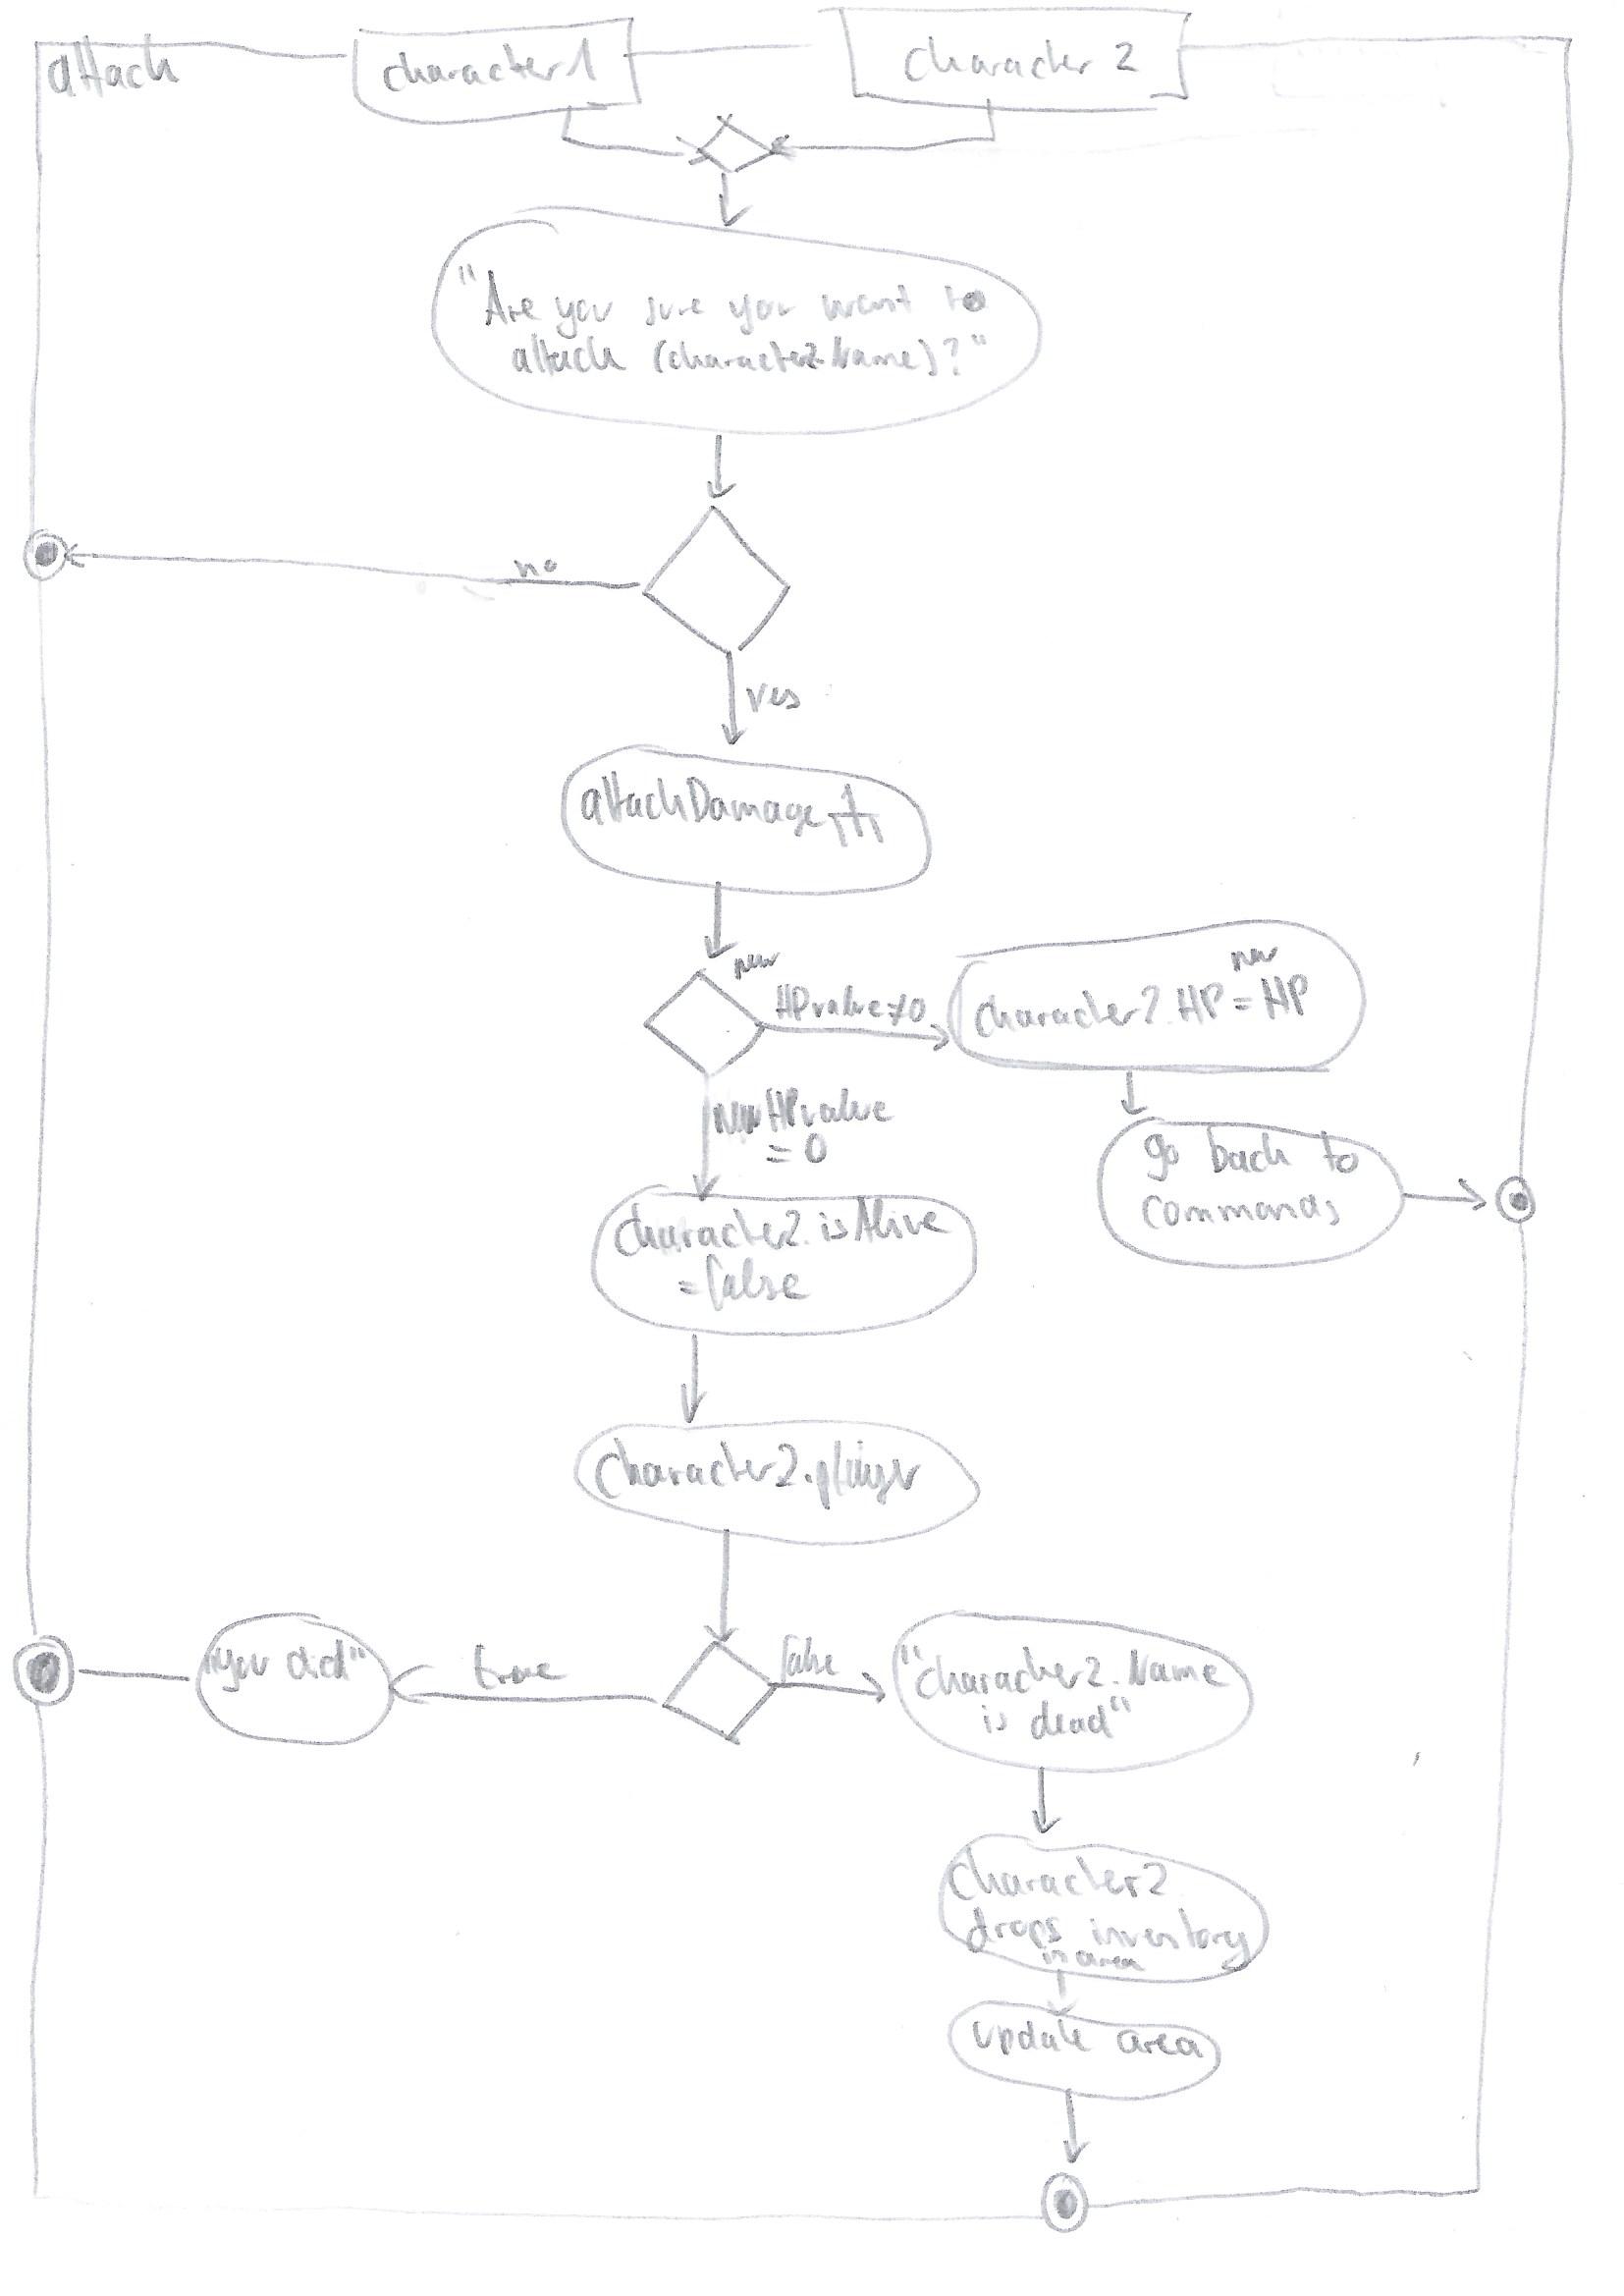 attack
character1
character 2
"Are you sure you want to
attack (character2.Name)?"
no
yes
attackDamage
new
HPvalue≠0
new
character2.HP = HP
newHPvalue
= 0
go back to
commands
character2.isAlive
= false
character2.player
"you died"
true
false
"character2.Name
is dead"
character2
drops inventory
in area
update area